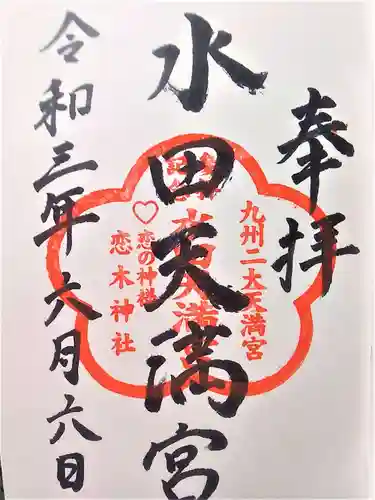 奉拝
九州二大天満宮
水田天満宮
♡恋の神様
恋木神社
令和三年六月六日